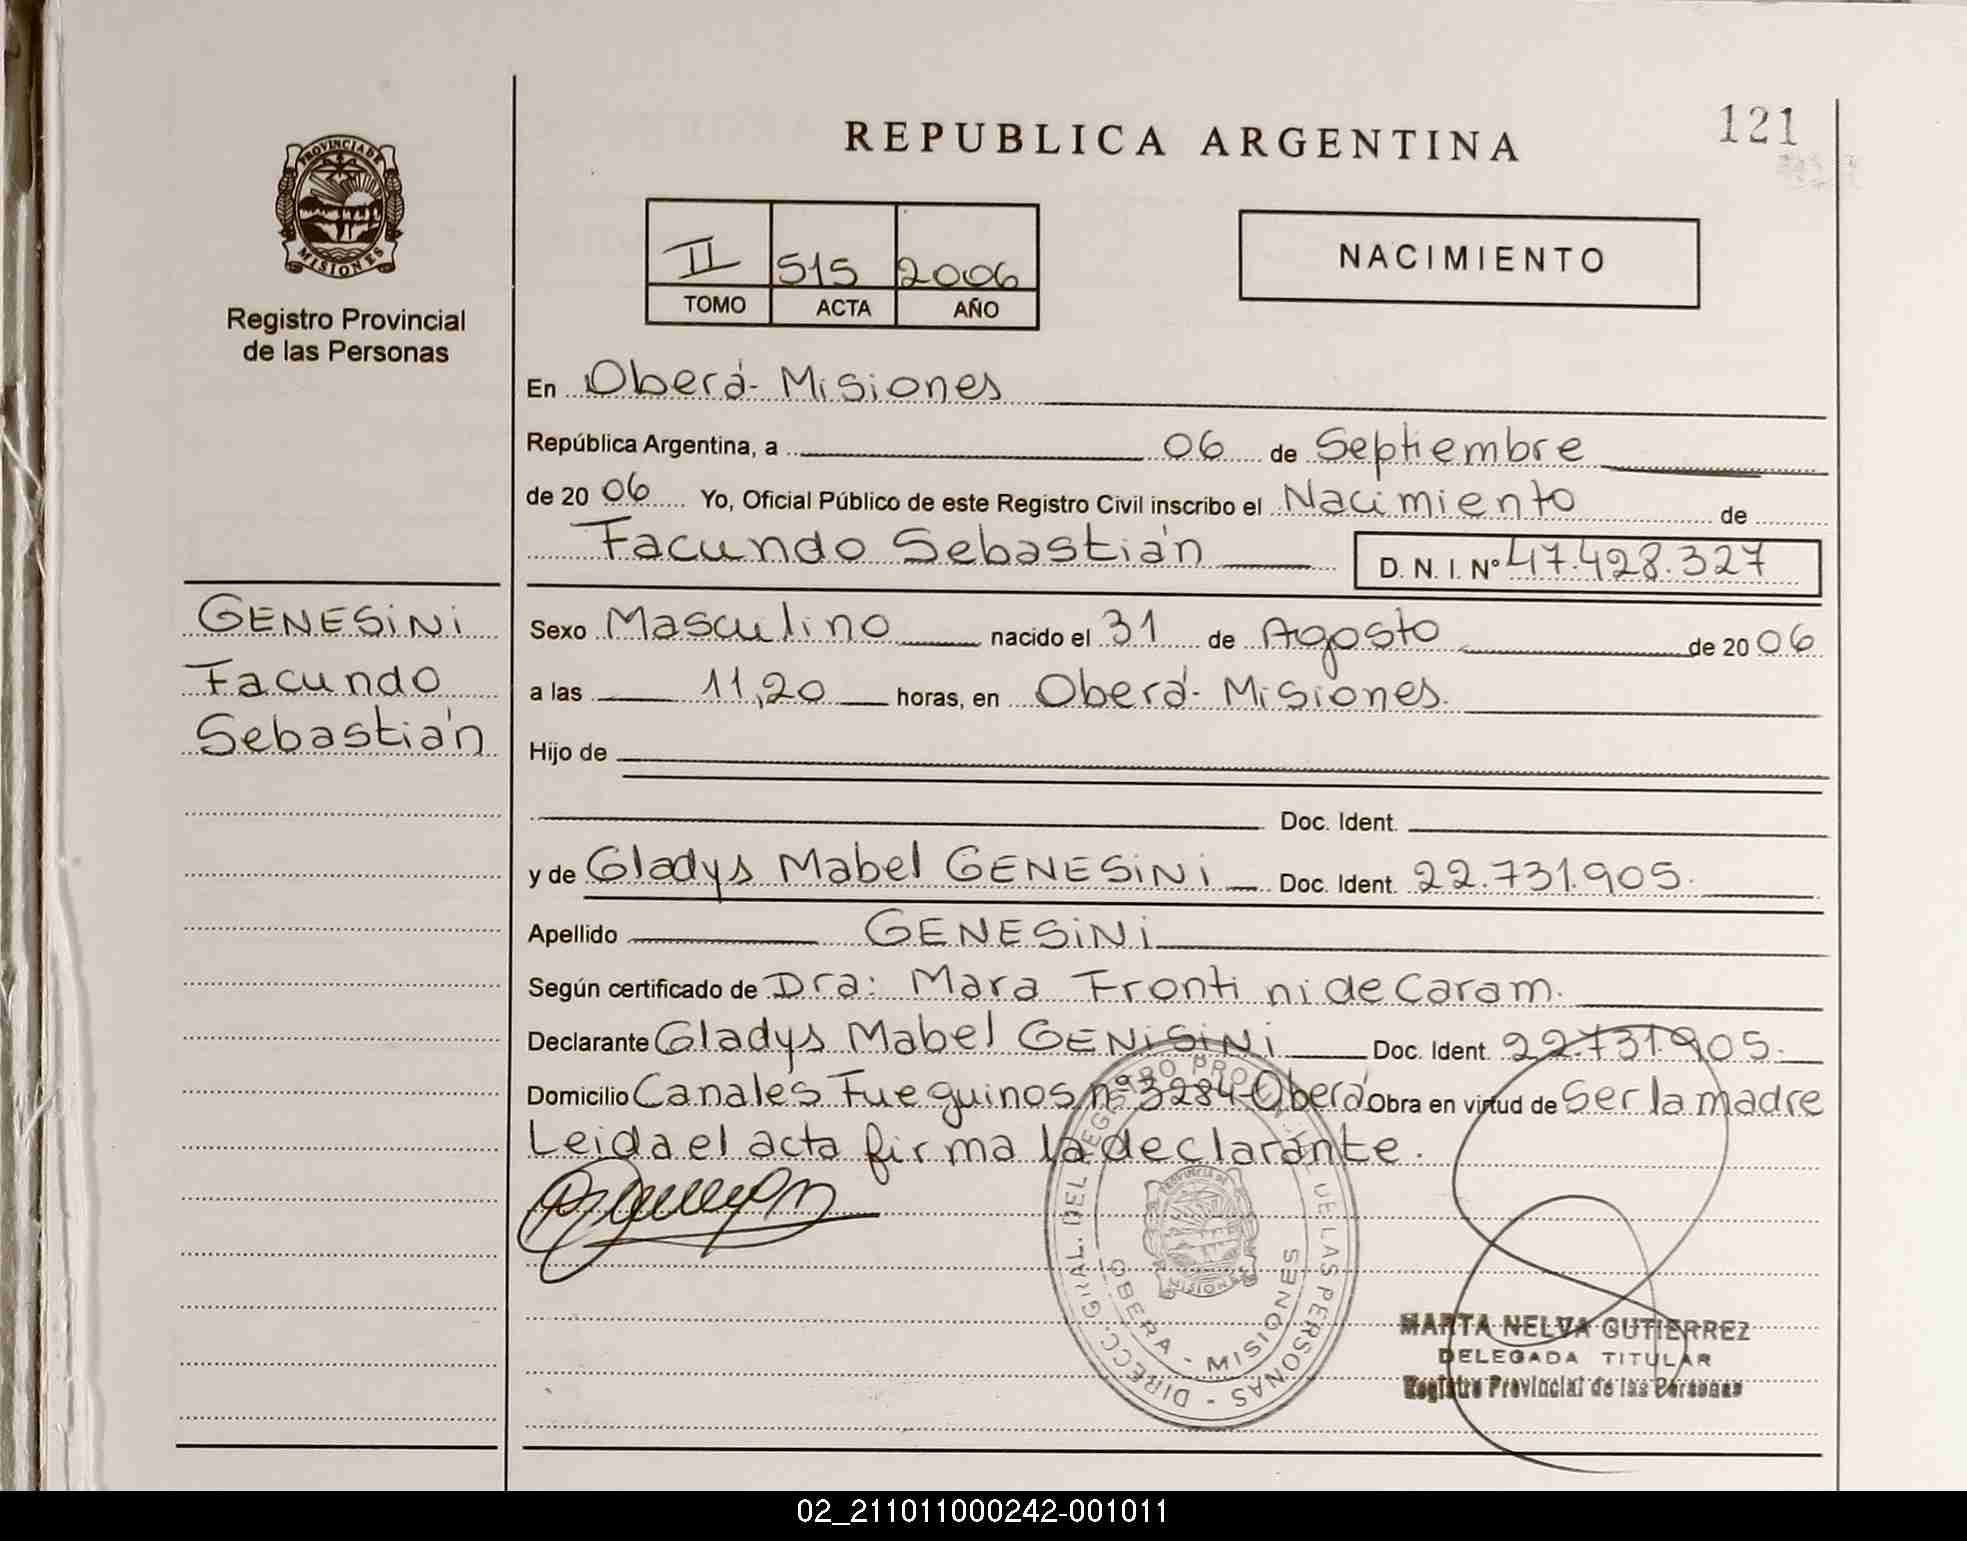 121
REPUBLICA ARGENTINA
PROVINCIA DE MISIONES
Registro Provincial
de las Personas
II 515 2006
TOMO ACTA AÑO
NACIMIENTO
En Oberá- Misiones
República Argentina, a 06 de Septiembre
de 20 06 Yo, Oficial Público de este Registro Civil inscribo el Nacimiento de
Facundo Sebastián D. N. I. Nº 47.428.327
GENESiNi
Facundo
Sebastián
Sexo Masculino nacido el 31 de Agosto de 20 06
a las 11,20 horas, en Oberá- Misiones.
Hijo de
Doc. Ident.
y de Gladys Mabel GENESiNi Doc. Ident. 22.731.905.
Apellido GENESiNi
Según certificado de Dra: Mara Frontini de Caram.
Declarante Gladys Mabel GENiSiNi Doc. Ident. 22.731.905.
Domicilio Canales Fueguinos nº 3284-Oberá Obra en virtud de Ser la madre
Leida el acta firma la declarante.
DIRECC. GRAL. DEL REGISTRO PROVINCIAL DE LAS PERSONAS -
PROVINCIA DE MISIONES
OBERA - MISIONES
MARTA NELVA GUTIERREZ
DELEGADA TITULAR
Registro Provincial de las Personas
02_211011000242-001011